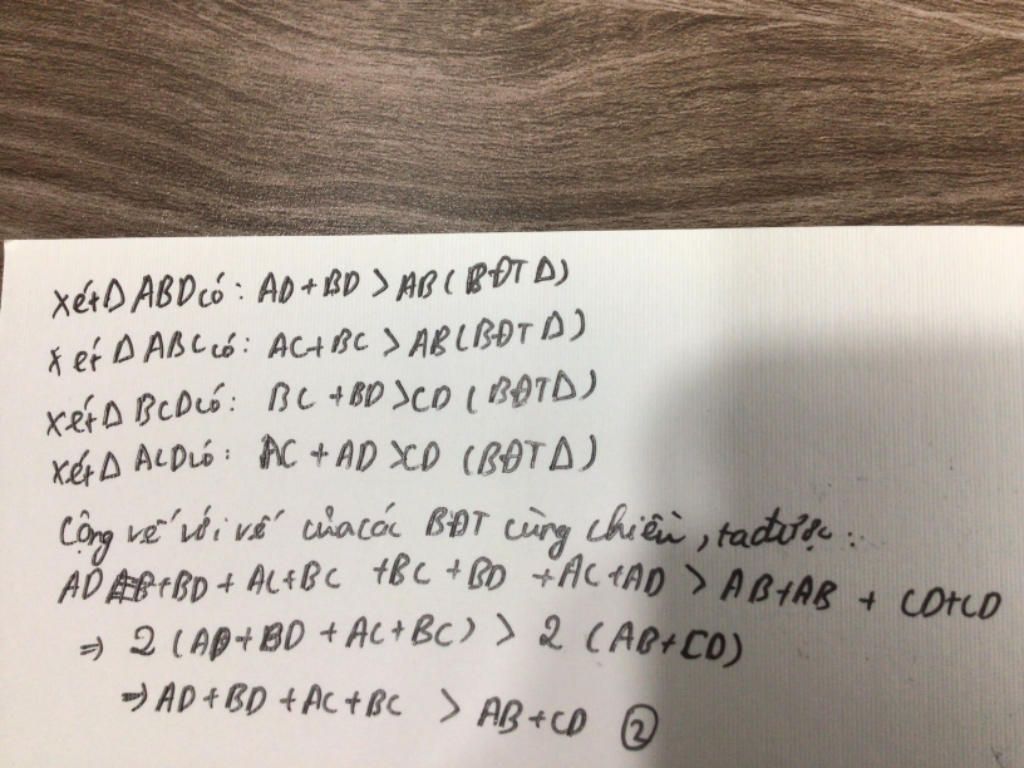 Xét Δ ABD có: AD + BD > AB (BĐT Δ)
Xét Δ ABC có: AC + BC > AB (BĐT Δ)
Xét Δ BCD có: BC + BD > CD (BĐT Δ)
Xét Δ ACD có: AC + AD > CD (BĐT Δ)
Cộng vế với vế của các BĐT cùng chiều, ta được:
AD + BD + AC + BC + BC + BD + AC + AD > AB + AB + CD + CD
⇒ 2 (AD + BD + AC + BC) > 2 (AB + CD)
⇒ AD + BD + AC + BC > AB + CD ②